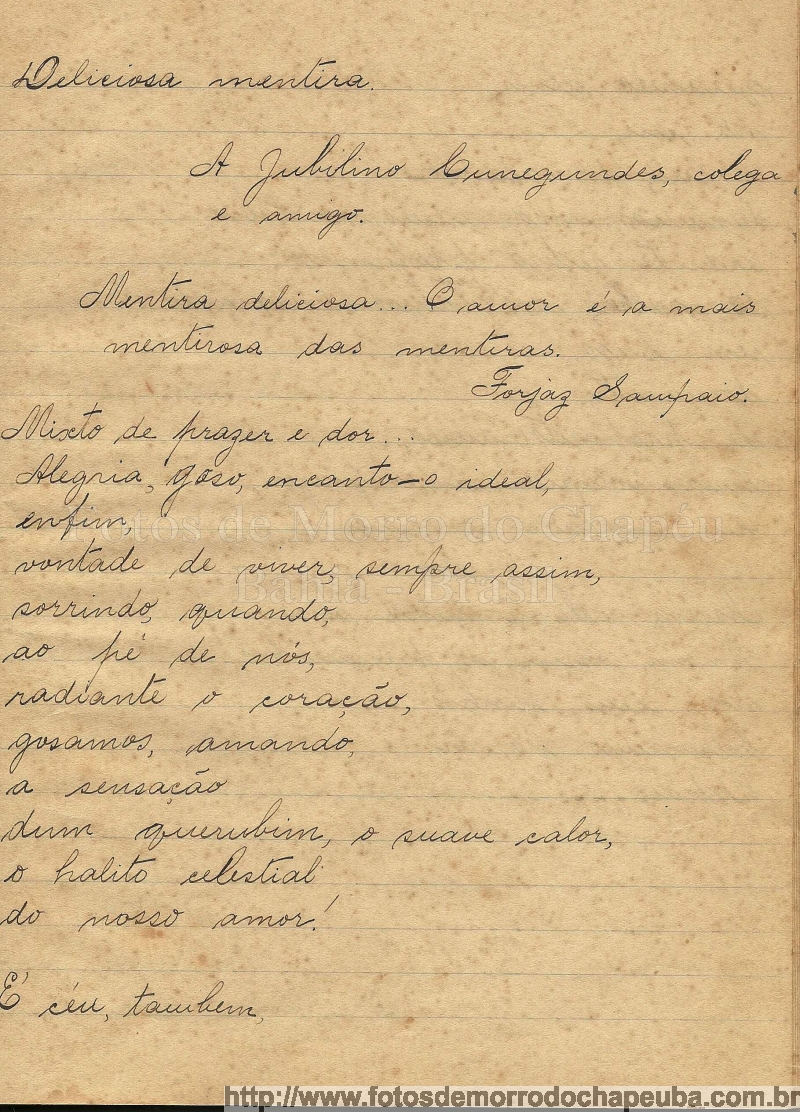 Deliciosa mentira.
A Jubilino Cunegundes, colega
e amigo.
Mentira deliciosa... O amor é a mais
mentirosa das mentiras.
Forjaz Sampaio.
Mixto de prazer e dor...
Alegria, goso, encanto-o ideal,
enfim,
Fotos de Morro do Chapéu
vontade de viver, sempre assim,
Bahia - Brasil
sorrindo, quando,
ao pé de nós,
radiante o coração,
gosamos, amando,
a sensação
dum querubim, o suave calor,
o halito celestial
do nosso amor!
É céu, tambem,
http://www.fotosdemorrodochapeuba.com.br